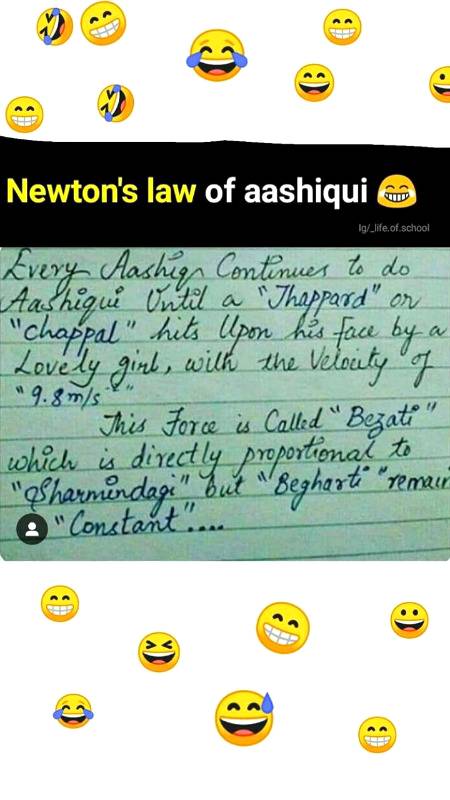 Newton's law of aashiqui
Ig/_life.of.school
Every Aashiqr Continues to do
Aashiqui Until a "Thappard" or
"chappal" hits Upon his face by a
Lovely girl, with the Velocity of
"9.8m/s²"
This Force is Called "Bezati"
which is directly proportional to
"Sharmindagi" but "Begharti" remain
"Constant"....